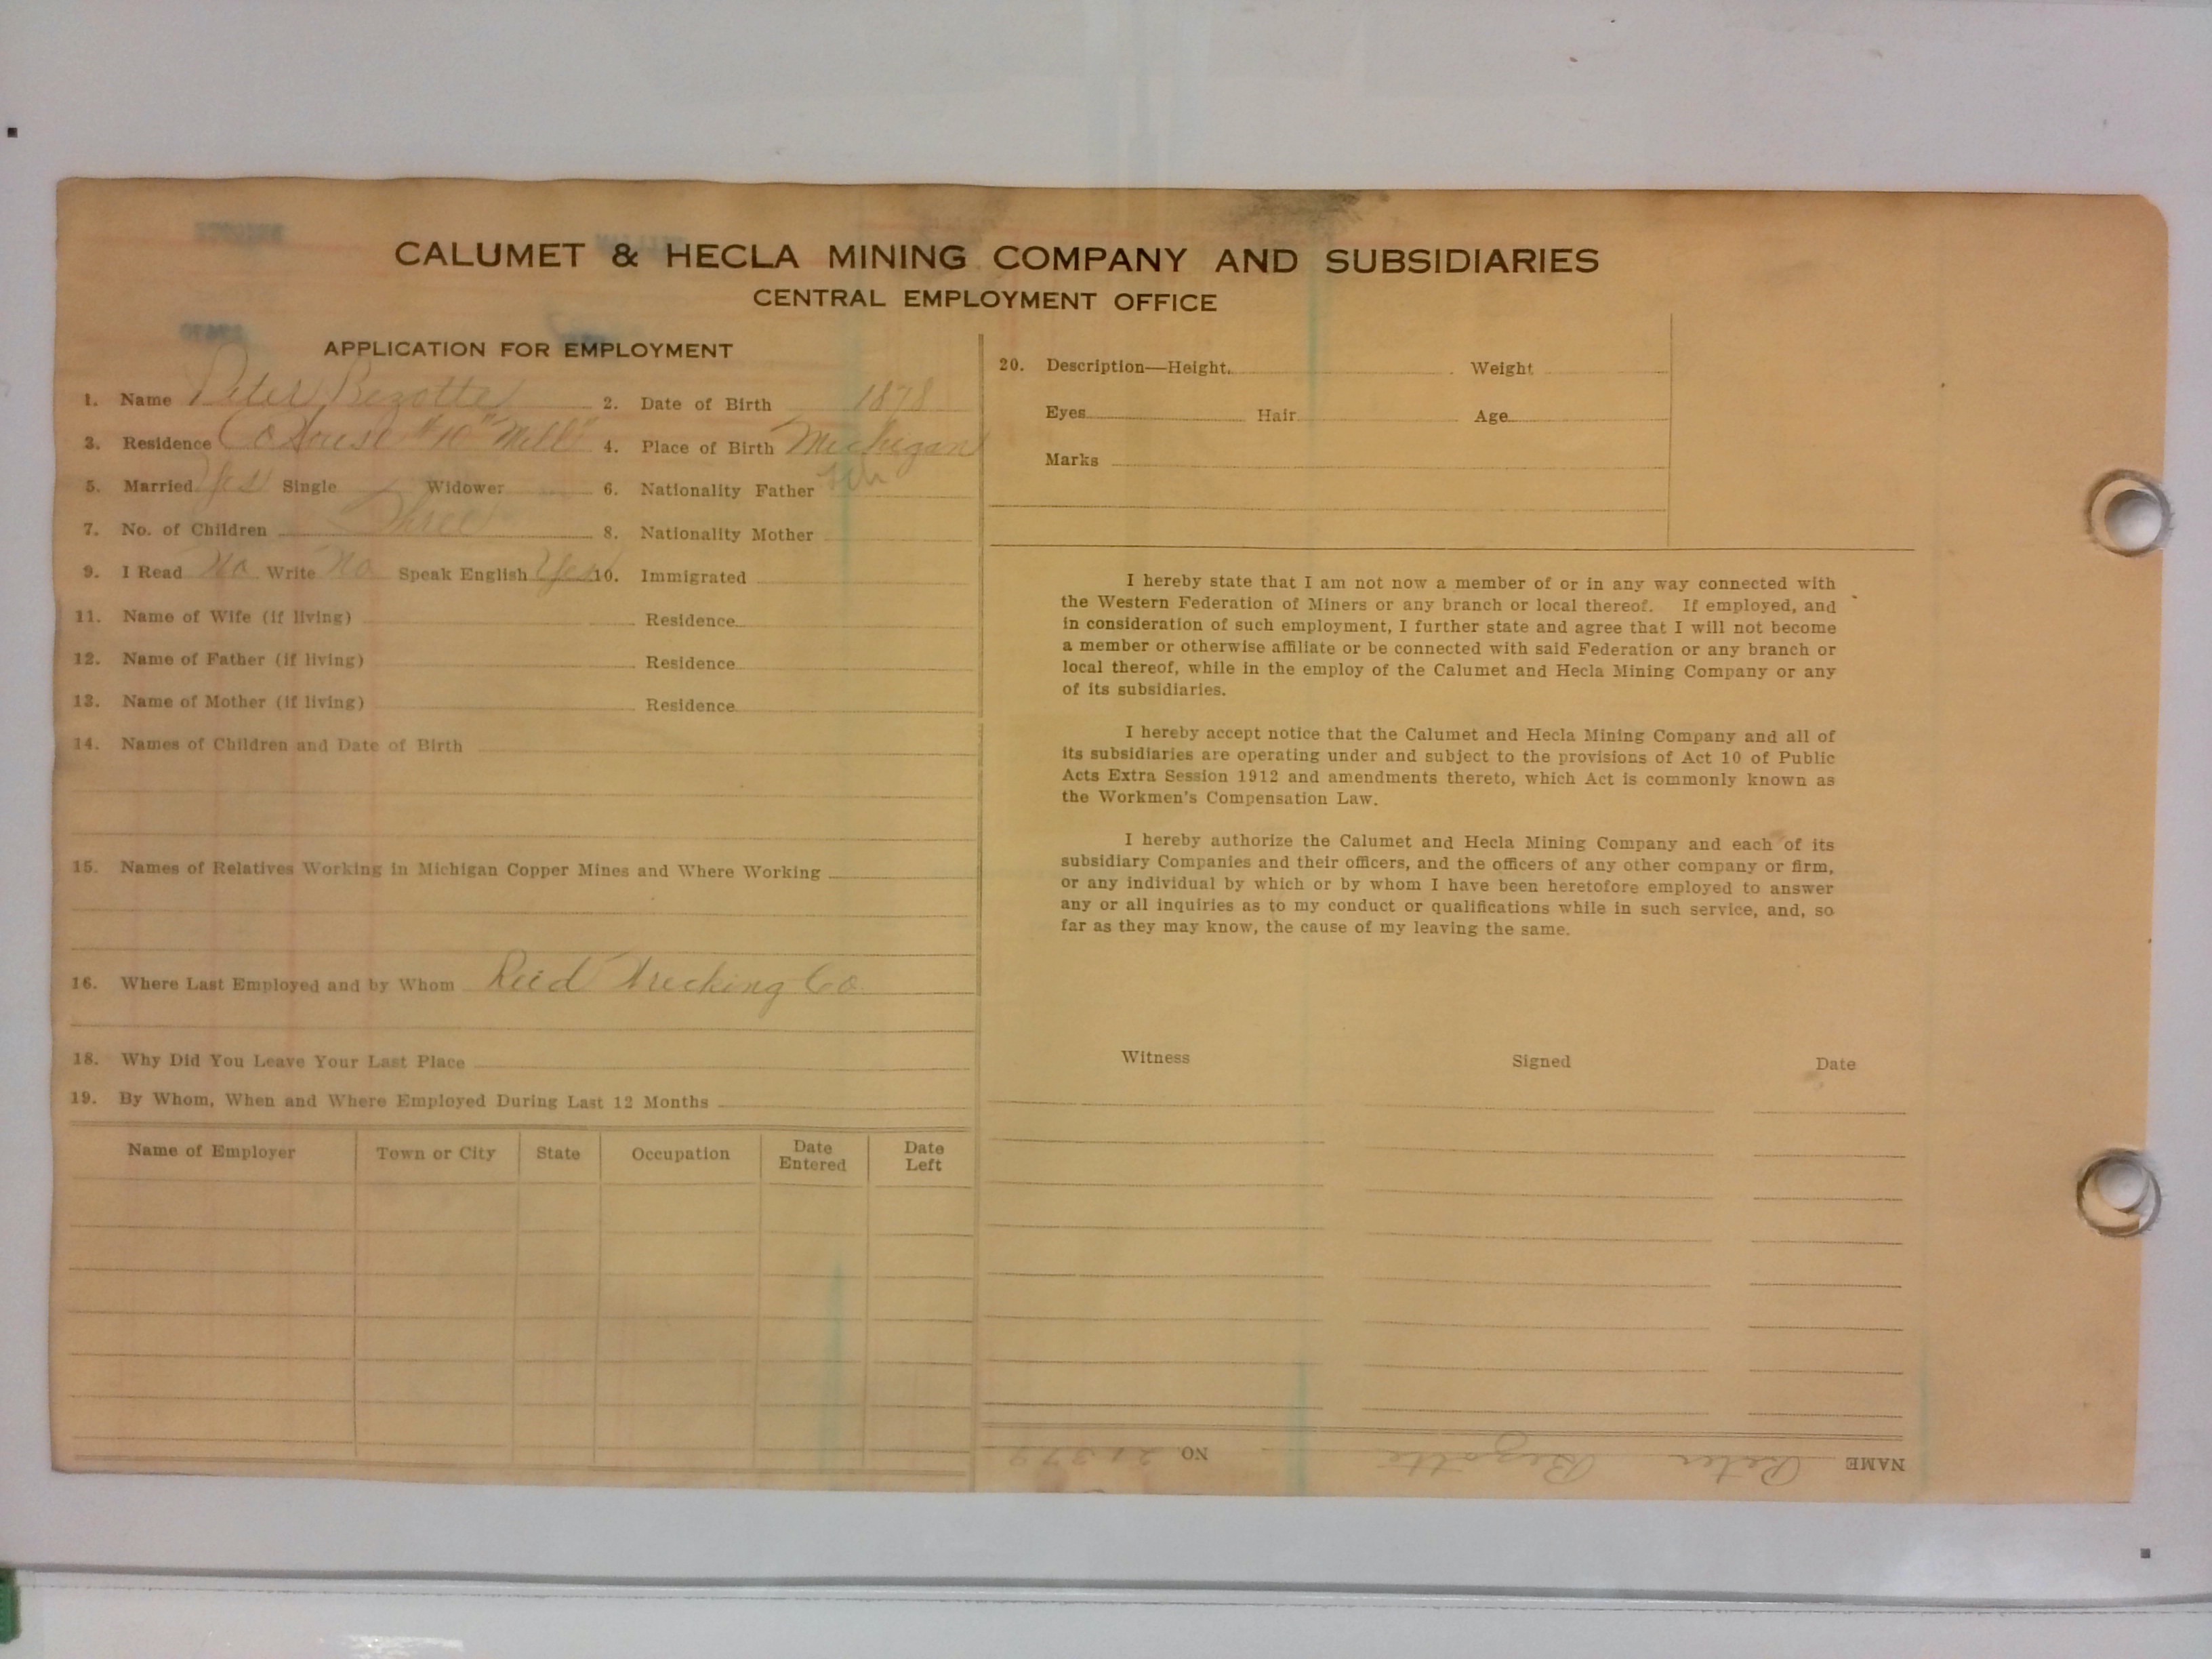 CALUMET & HECLA MINING COMPANY AND SUBSIDIARIES
CENTRAL EMPLOYMENT OFFICE
APPLICATION FOR EMPLOYMENT
1. Name Peter Bezotte 2. Date of Birth 1878
3. Residence Co House #10 "Mill" 4. Place of Birth Michigan
5. Married Yes Single Widower 6. Nationality Father
7. No. of Children Three 8. Nationality Mother
9. I Read No Write No Speak English Yes 10. Immigrated
11. Name of Wife (if living) Residence
12. Name of Father (if living) Residence
13. Name of Mother (if living) Residence
14. Names of Children and Date of Birth
15. Names of Relatives Working in Michigan Copper Mines and Where Working
16. Where Last Employed and by Whom Reid Wrecking Co.
18. Why Did You Leave Your Last Place
19. By Whom, When and Where Employed During Last 12 Months
Name of Employer Town or City State Occupation Date Entered Date Left
20. Description—Height Weight
Eyes Hair Age
Marks
I hereby state that I am not now a member of or in any way connected with
the Western Federation of Miners or any branch or local thereof. If employed, and
in consideration of such employment, I further state and agree that I will not become
a member or otherwise affiliate or be connected with said Federation or any branch or
local thereof, while in the employ of the Calumet and Hecla Mining Company or any
of its subsidiaries.
I hereby accept notice that the Calumet and Hecla Mining Company and all of
its subsidiaries are operating under and subject to the provisions of Act 10 of Public
Acts Extra Session 1912 and amendments thereto, which Act is commonly known as
the Workmen's Compensation Law.
I hereby authorize the Calumet and Hecla Mining Company and each of its
subsidiary Companies and their officers, and the officers of any other company or firm,
or any individual by which or by whom I have been heretofore employed to answer
any or all inquiries as to my conduct or qualifications while in such service, and, so
far as they may know, the cause of my leaving the same.
Witness Signed Date
NAME Peter Bezotte NO